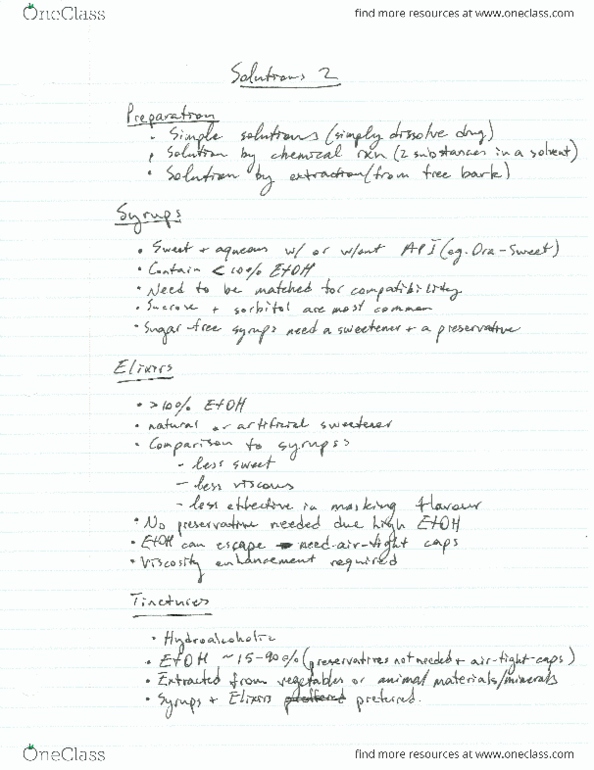 OneClass find more resources at www.oneclass.com
Solutions 2
Preparation
• Simple solutions (simply dissolve drug)
• Solution by chemical rxn (2 substances in a solvent)
• Solution by extraction (from tree bark)
Syrups
• Sweet + aqueous w/ or w/out API (eg. Ora-Sweet)
• Contain < 10% EtOH
• Need to be matched for compatibility
• Sucrose + sorbitol are most common
• Sugar-free syrups need a sweetener + a preservative
Elixirs
• >10% EtOH
• natural or artificial sweetener
• Comparison to syrups:
- less sweet
- less viscous
- less effective in masking flavour
• No preservative needed due high EtOH
• EtOH can escape need air-tight caps
• Viscosity enhancement required
Tinctures
• Hydroalcoholic
• EtOH ~15-90% (preservatives not needed + air-tight-caps)
• Extracted from vegetables or animal materials/minerals
• Syrups + Elixirs preferred.
OneClass find more resources at www.oneclass.com